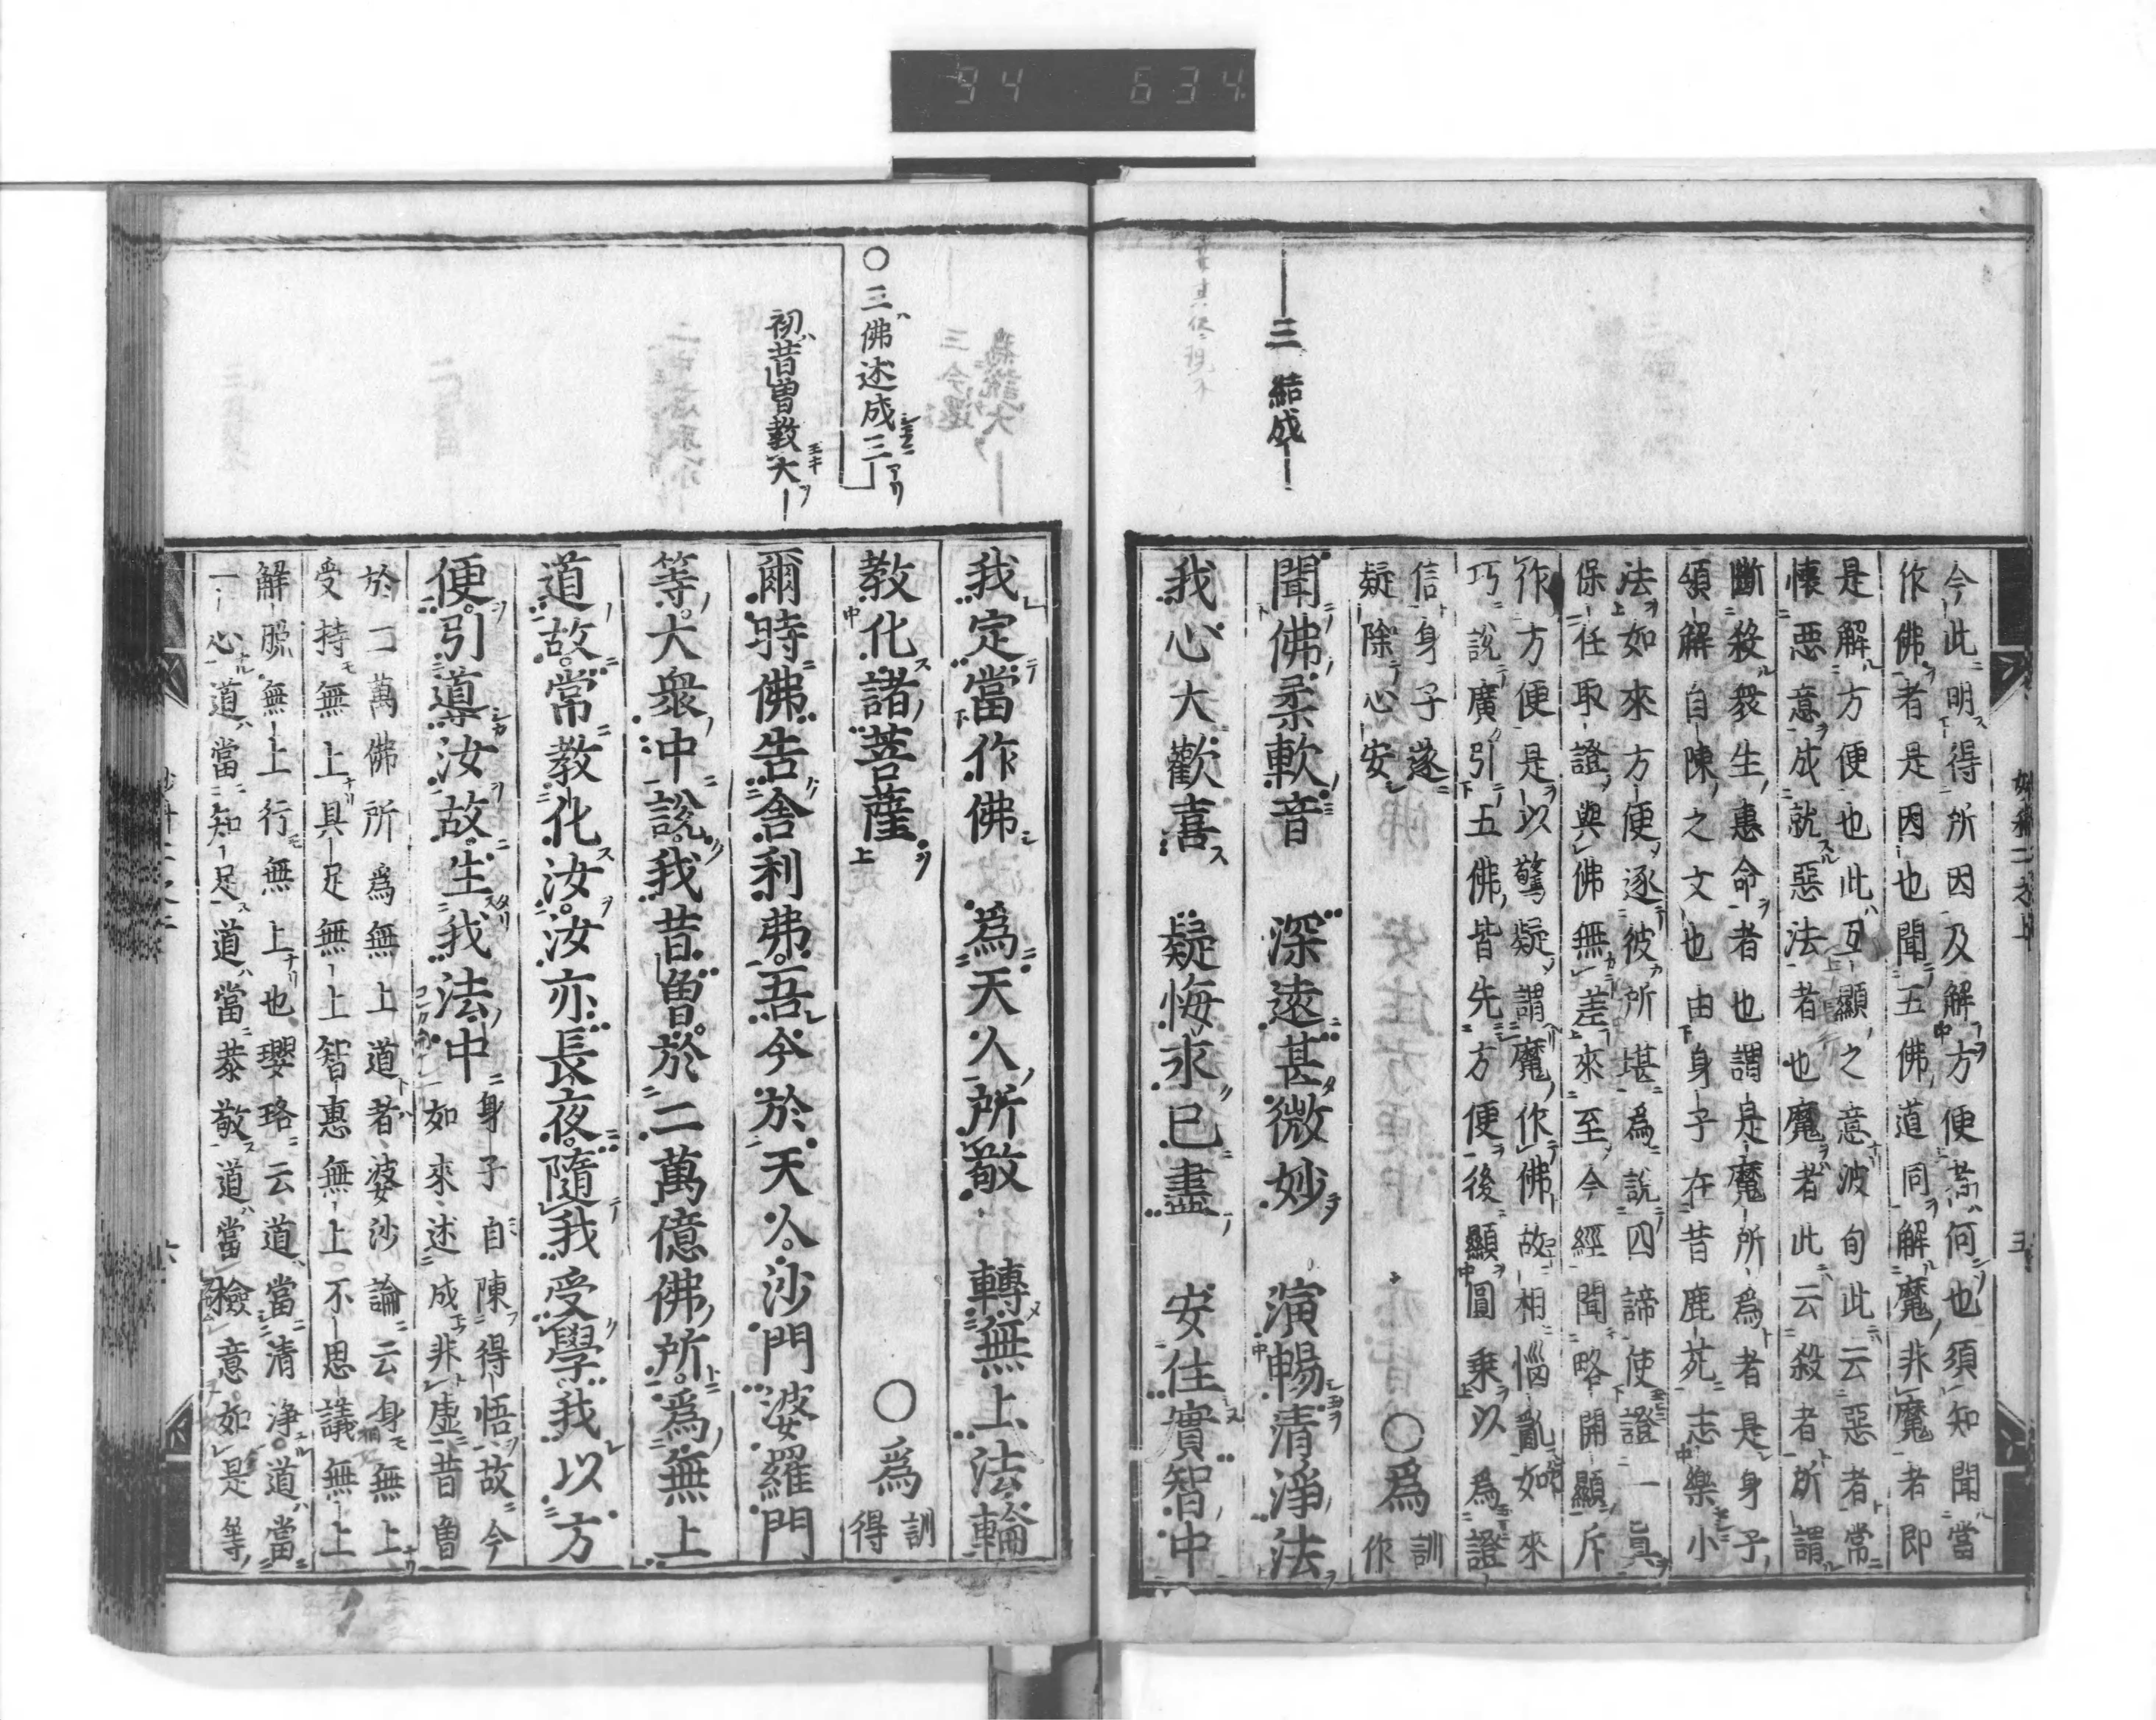 94 634
三 結成
今此明得所因及解方便者何也須知聞當
作佛者是因也聞五佛道同解魔非魔者即
是解方便也此互顯之意波旬此云惡者常
懷惡意成就惡法者也魔者此云殺者所謂
斷殺衆生惠命者也謂是魔所為者是身子
領解自陳之文也由身子在昔鹿苑志樂小
法如來方便逐彼所堪為說四諦使證一真
保任取證與佛無差來至今經聞略開顯斥
作方便是以驚疑謂魔作佛故相惱亂如來
巧說廣引五佛皆先方便後顯圓乘以為證
信身子遂
疑除心安
○為 訓作
聞佛柔軟音 深遠甚微妙 演暢清淨法
我心大歡喜 疑悔永已盡 安住實智中
我定當作佛 為天人所敬 轉無上法輪
教化諸菩薩 ○為 訓得
○三佛述成三
初昔曽教大
爾時佛告舍利弗吾今於天人沙門婆羅門
等大衆中說我昔曽於二萬億佛所為無上
道故常教化汝汝亦長夜隨我受學我以方
便引導汝故生我法中
身子自陳得悟故今
如來述成非虛昔曽
於二萬佛所為無上道者婆沙論云身無上
受持無上具足無上智惠無上不思議無上
解脫無上行無上也瓔珞云道當清淨道當
一心道當知足道當恭敬道當檢意如是等